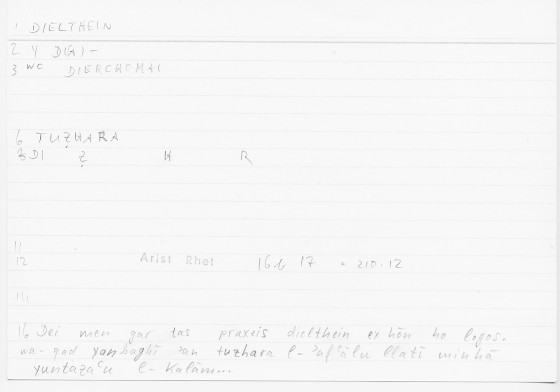 1 DIELTHEIN
2 Y D(A) -
3 WC DIERCHOMAI
6 TUẒHARA
3 DI Ẓ H R
11
12 Arist Rhet 16b 17 = 210.12
111
16 Dei men gar tas praxeis dielthein ex hōn ho logos.
wa-qad yanbaghī ʾan tuzhara l-ʾafʿālu llatī minhā
yuntazaʿu l-kalām...